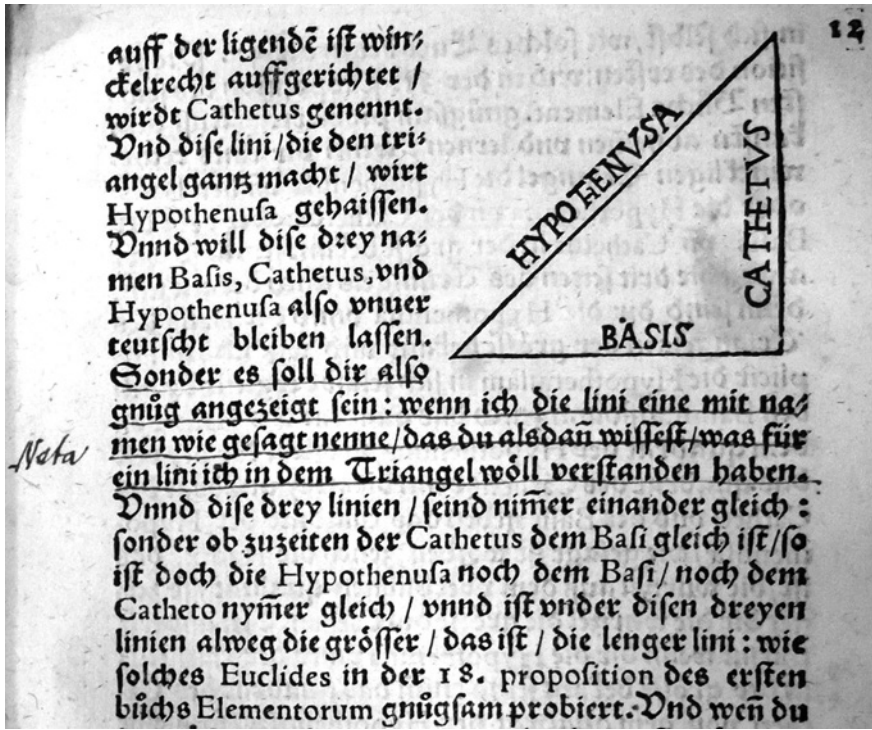 12
auff der ligendẽ ist win⸗
ckelrecht auffgerichtet /
wirdt Cathetus genennt.
Vnd dise lini / die den tri⸗
angel gantz macht / wirt
Hypothenusa gehaissen.
Vnnd will dise drey na⸗
men Basis, Cathetus, vnd
Hypothenusa also vnuer
teutscht bleiben lassen.
Sonder es soll dir also
HYPOTHENVSA
CATHETVS
BASIS
gnůg angezeigt sein : wenn ich die lini eine mit na⸗
men wie gesagt nenne / das du alsdañ wissest / was für
ein lini ich in dem Triangel wöll verstanden haben.
Nota
Vnnd dise drey linien / seind nim̃er einander gleich :
sonder ob zuzeiten der Cathetus dem Basi gleich ist / so
ist doch die Hypothenusa noch dem Basi / noch dem
Catheto nym̃er gleich / vnnd ist vnder disen dreyen
linien alweg die grösser / das ist / die lenger lini : wie
solches Euclides in der 18. proposition des ersten
bůchs Elementorum gnůgsam probiert. Vnd weñ du